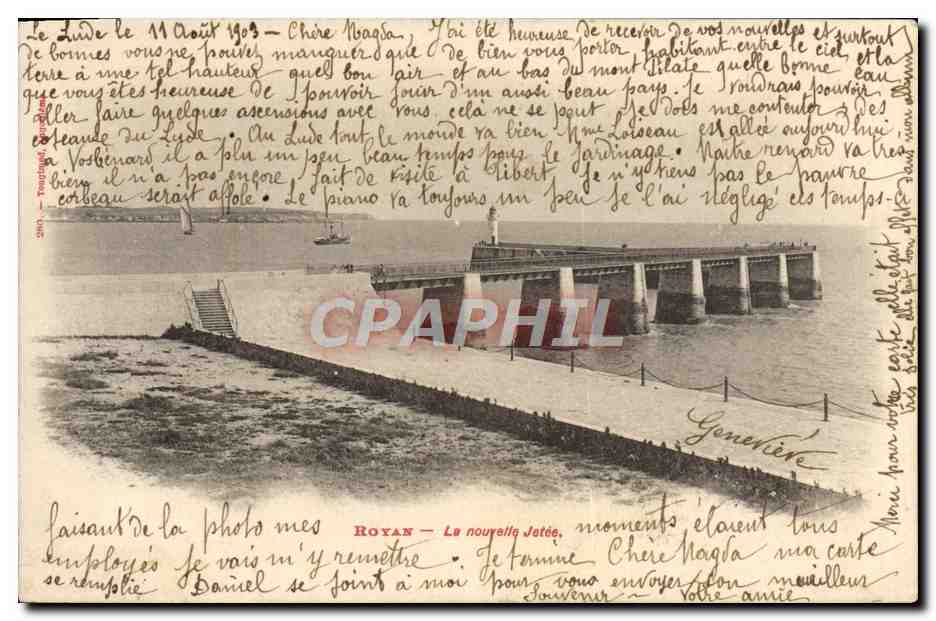 Le Lude le 11 Août 1903 - Chère Magda, J'ai été heureuse de recevoir de vos nouvelles et surtout
de bonnes vous ne pouvez manquer que de bien vous porter, habitant entre le ciel et la
terre à une tel hauteur quel bon air et au bas du mont Pilate quelle bonne eau
que vous êtes heureuse de pouvoir jouir d'un aussi beau pays. Je voudrais pouvoir
aller faire quelques ascensions avec vous. celà ne se peut je dois me contenter des
coteaux du Lude. Au Lude tout le monde va bien Mme Loiseau est allée aujourd'hui
à Vosbénard il a plu un peu beau temps pour le jardinage. Maître renard va très
bien il n'a pas encore fait de visite à Tibert, je n'y tiens pas le pauvre
corbeau serait affolé. Le piano va toujours un peu je l'ai négligé ces temps-
280. - Tougirard,
CPAPHIL
Geneviève
ROYAN - La nouvelle Jetée.
faisant de la photo mes moments étaient tous
employés je vais m'y remettre. Je termine Chère Magda ma carte
se remplie Daniel se joint à moi pour vous envoyer son meilleur
Souvenir - Votre amie
Merci pour votre carte elle était très jolie elle fait son effet dans mon album